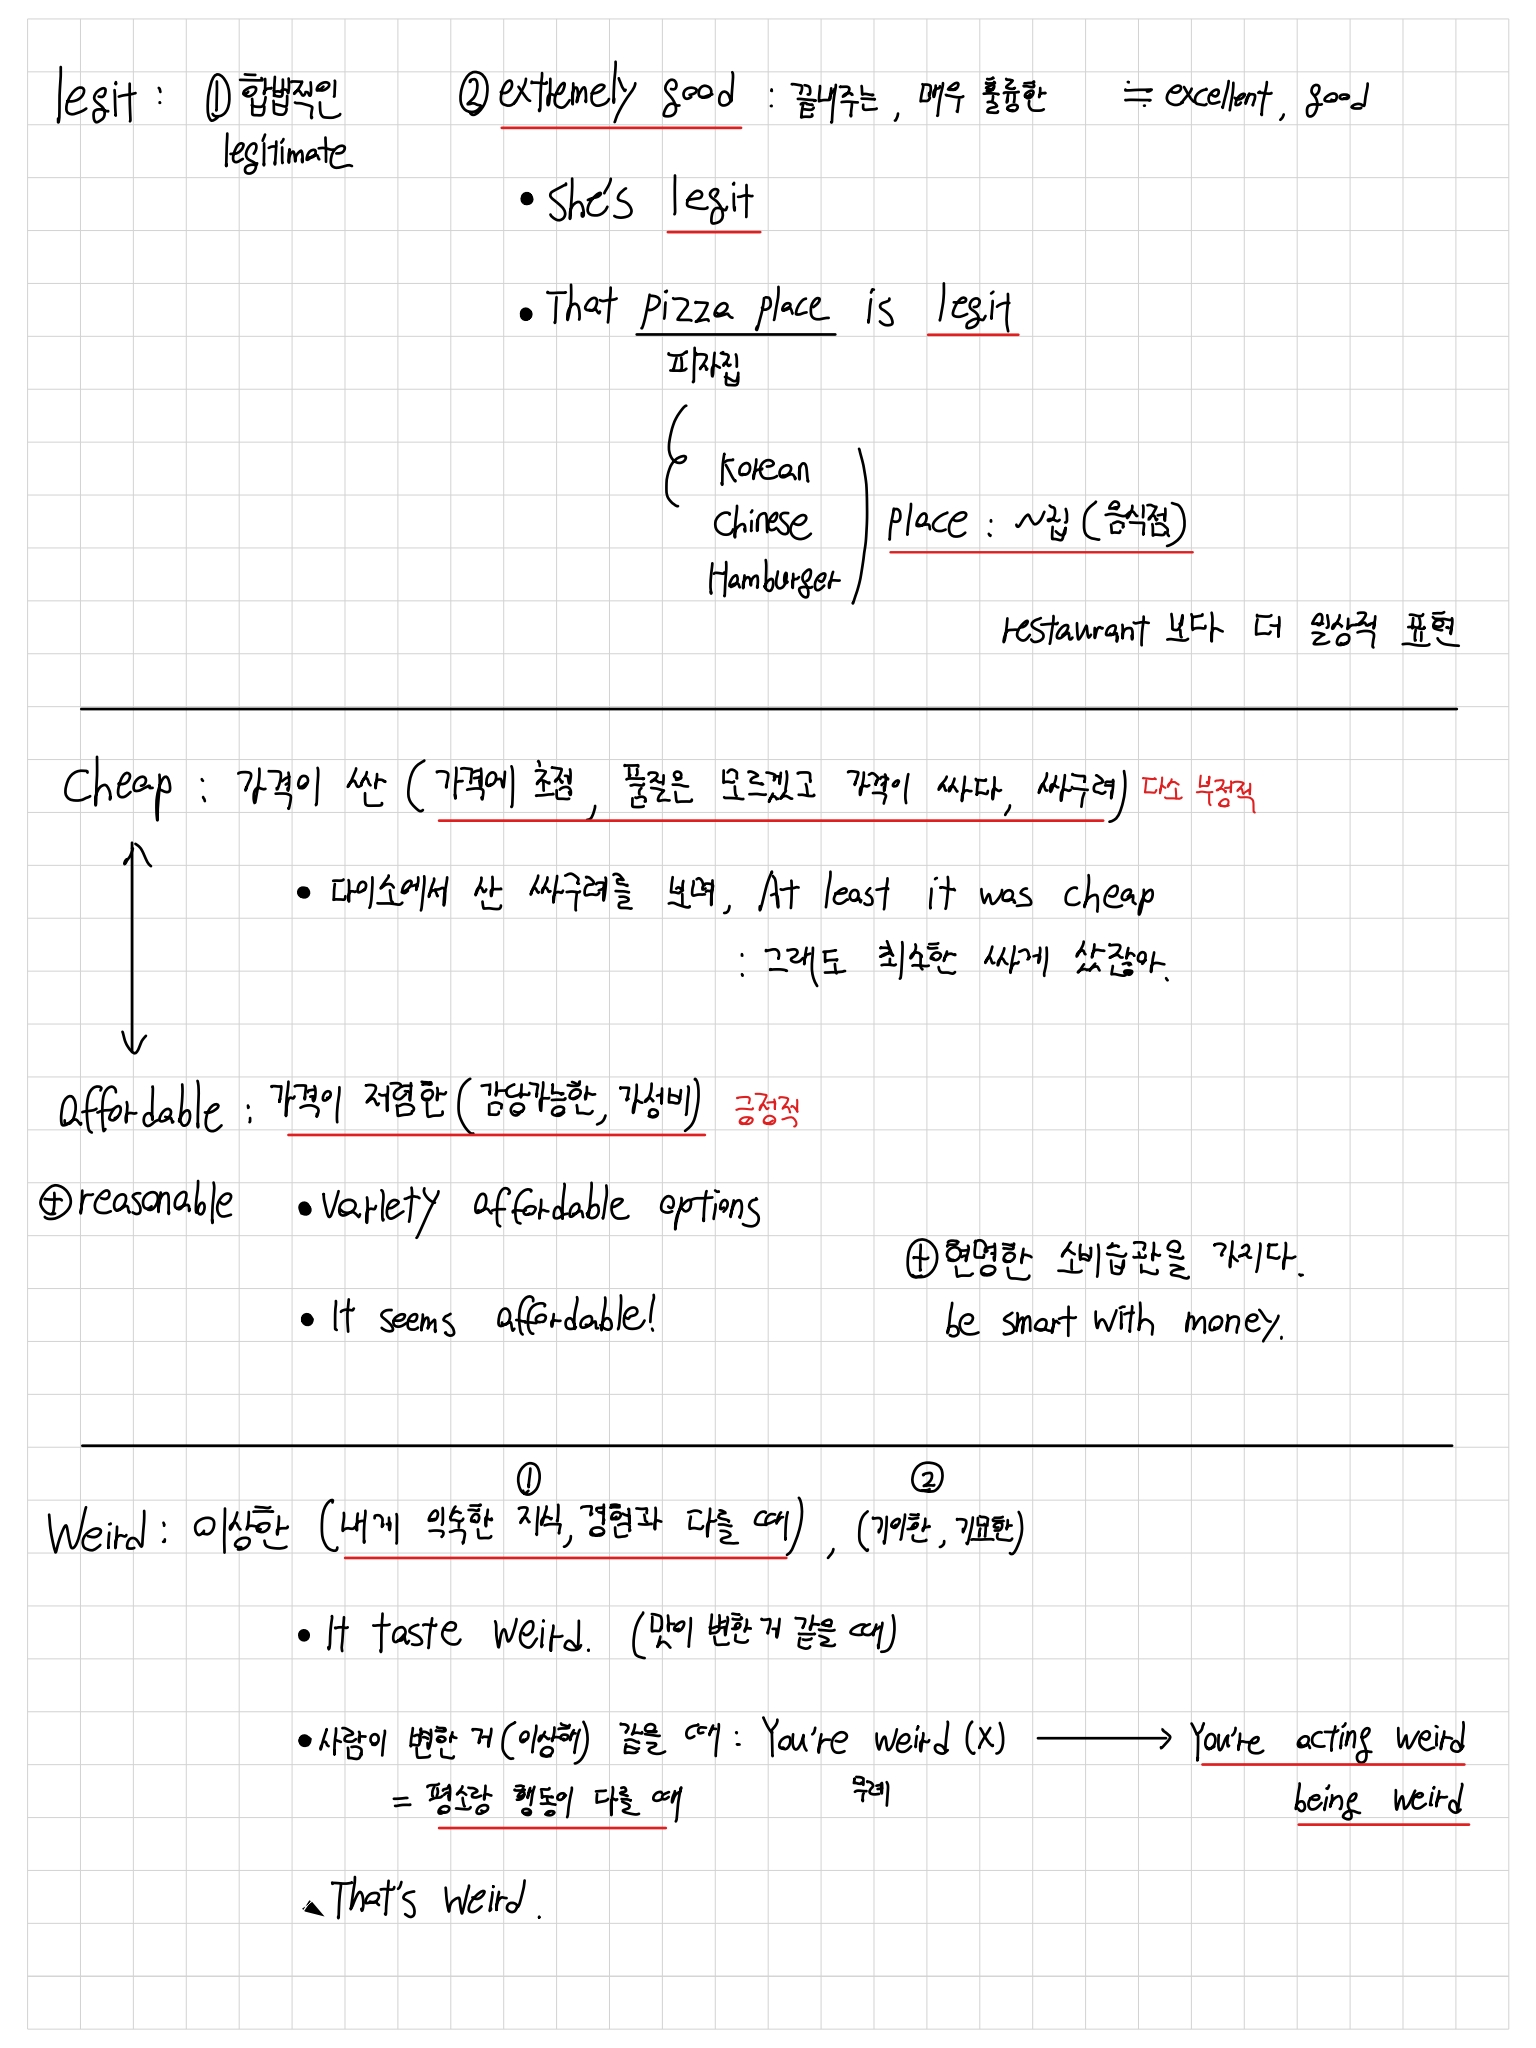 legit : ① 합법적인 ② extremely good : 끝내주는, 매우 훌륭한 ≒ excellent, good
legitimate
• She's legit
• That pizza place is legit
피자집
Korean
Chinese
Hamburger
place : ~집 (음식점)
restaurant 보다 더 일상적 표현
Cheap : 가격이 싼 (가격에 초점, 품질은 모르겠고 가격이 싸다, 싸구려) 다소 부정적
• 다이소에서 산 싸구려를 보며, At least it was cheap
: 그래도 최소한 싸게 샀잖아.
affordable : 가격이 저렴한 (감당가능한, 가성비) 긍정적
⊕ reasonable • variety affordable options
⊕ 현명한 소비습관을 가지다.
• It seems affordable!
be smart with money.
① ②
Weird : 이상한 (내게 익숙한 지식, 경험과 다를 때), (기이한, 기묘한)
• It taste weird. (맛이 변한 거 같을 때)
• 사람이 변한 거 (이상해) 같을 때 : You're weird (X) → You're acting weird
= 평소랑 행동이 다를 때 무례 being weird
That's weird.